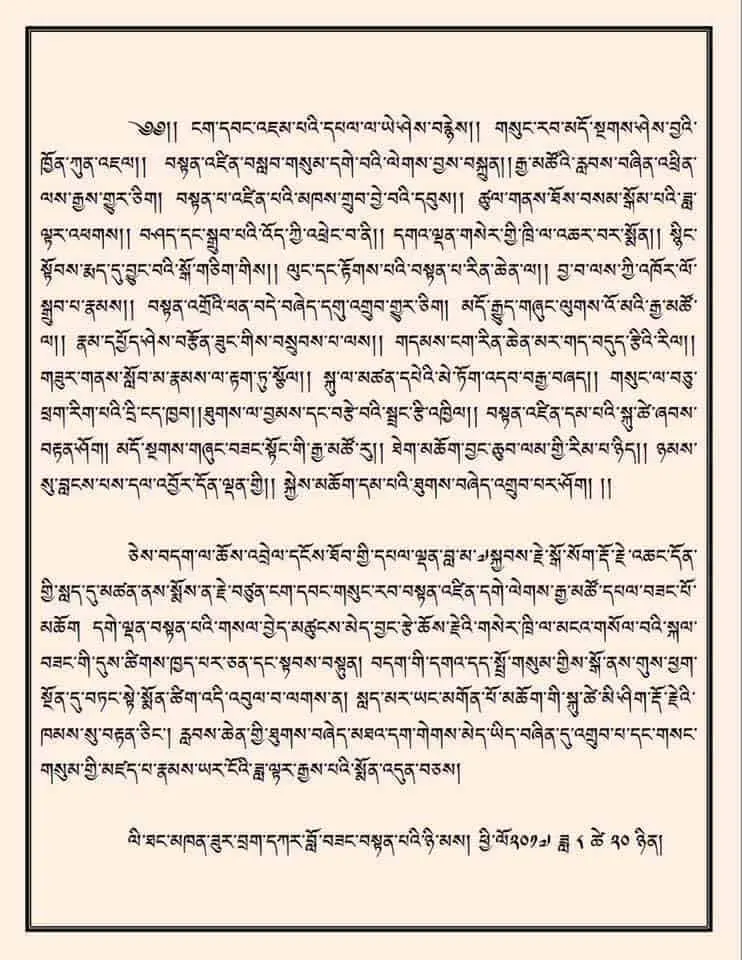 ༄༅།། ངག་དབང་འཇམ་པའི་དཔལ་ལ་ཡེ་ཤེས་བརྙེས།། གསུང་རབ་མདོ་སྔགས་ཤེས་བྱའི་
ཁྱོན་ཀུན་འཇལ།། བསྟན་འཛིན་བསླབ་གསུམ་དགེ་བའི་ལེགས་བྱས་བསྐྲུན།།རྒྱ་མཚོའི་རླབས་བཞིན་འཕྲིན་
ལས་རྒྱས་གྱུར་ཅིག། བསྟན་པ་འཛིན་པའི་མཁས་གྲུབ་བྱེ་བའི་དབུས།། ཚུལ་གནས་ཐོས་བསམ་སྒོམ་པའི་ཟླ་
ལྟར་འཕགས།། བཤད་དང་སྒྲུབ་པའི་འོད་ཀྱི་འཕྲེང་བ་ནི།། དགའ་ལྡན་གསེར་གྱི་ཁྲི་ལ་འཆར་བར་སྨོན།། སྙིང་
སྟོབས་རྨད་དུ་བྱུང་བའི་སྒོ་གཅིག་གིས།། ལུང་དང་རྟོགས་པའི་བསྟན་པ་རིན་ཆེན་ལ།། བྱ་བ་ལས་ཀྱི་འཁོར་ལོ་
སྒྲུབ་པ་རྣམས།། བསྟན་འགྲོའི་ཕན་བདེ་བཞེད་དགུ་འགྲུབ་གྱུར་ཅིག། མདོ་རྒྱུད་གཞུང་ལུགས་འོ་མའི་རྒྱ་མཚོ་
ལ།། རྣམ་དཔྱོད་ཤེས་བརྩོན་ཟུང་གིས་བསྲུབས་པ་ལས།། གདམས་ངག་རིན་ཆེན་མར་གད་བདུད་རྩིའི་རིལ།།
གཟུར་གནས་སློབ་མ་རྣམས་ལ་རྟག་ཏུ་སྩོལ།། སྐུ་ལ་མཚན་དཔེའི་མེ་ཏོག་འདབ་བརྒྱ་བཞད།། གསུང་ལ་བཅུ་
ཕྲག་རིག་པའི་དྲི་ངད་ཁྱབ།།ཐུགས་ལ་བྱམས་དང་བརྩེ་བའི་སྦྲང་རྩི་འཁྱིལ།། བསྟན་འཛིན་དམ་པའི་སྐུ་ཚེ་ཞབས་
བརྟན་ཤོག། མདོ་སྔགས་གཞུང་བཟང་སྟོང་གི་རྒྱ་མཚོ་རུ།། ཐེག་མཆོག་བྱང་ཆུབ་ལམ་གྱི་རིམ་པ་ཉིད།། ཉམས་
སུ་བླངས་པས་དལ་འབྱོར་དོན་ལྡན་གྱི།། སྐྱེས་མཆོག་དམ་པའི་ཐུགས་བཞེད་འགྲུབ་པར་ཤོག། །།
ཅེས་བདག་ལ་ཆོས་འབྲེལ་དངོས་ཐོབ་ཀྱི་དཔལ་ལྡན་བླ་མ་༧སྐྱབས་རྗེ་སྒོ་སོག་རྡོ་རྗེ་འཆང་དོན་
གྱི་སླད་དུ་མཚན་ནས་སྨོས་ན་རྗེ་བཙུན་ངག་དབང་གསུང་རབ་བསྟན་འཛིན་དགེ་ལེགས་རྒྱ་མཚོ་དཔལ་བཟང་པོ་
མཆོག དགེ་ལྡན་བསྟན་པའི་གསལ་བྱེད་མཚུངས་མེད་བྱང་རྩེ་ཆོས་རྗེའི་གསེར་ཁྲི་ལ་མངའ་གསོལ་བའི་སྐལ་
བཟང་གི་དུས་ཚིགས་ཁྱད་པར་ཅན་དང་སྟབས་བསྟུན། བདག་གི་དགའ་དད་སྤྲོ་གསུམ་གྱིས་སྒོ་ནས་གུས་ཕྱག་
སྔོན་དུ་བཏང་སྟེ་སྨོན་ཚིག་འདི་འབུལ་བ་ལགས་ན། སླད་མར་ཡང་མགོན་པོ་མཆོག་གི་སྐུ་ཚེ་མི་ཤིག་རྡོ་རྗེའི་
ཁམས་སུ་བརྟན་ཅིང་། རླབས་ཆེན་གྱི་ཐུགས་བཞེད་མཐའ་དག་གེགས་མེད་ཡིད་བཞིན་དུ་འགྲུབ་པ་དང་གསང་
གསུམ་གྱི་མཛད་པ་རྣམས་ཡར་ངོའི་ཟླ་ལྟར་རྒྱས་པའི་སྨོན་འདུན་བཅས།
ལི་ཐང་མཁན་ཟུར་བྲག་དཀར་བློ་བཟང་བསྟན་པའི་ཉི་མས། ཕྱི་ལོ༢༠༡༧ ཟླ ༨ ཚེ ༢༠ ཉིན།